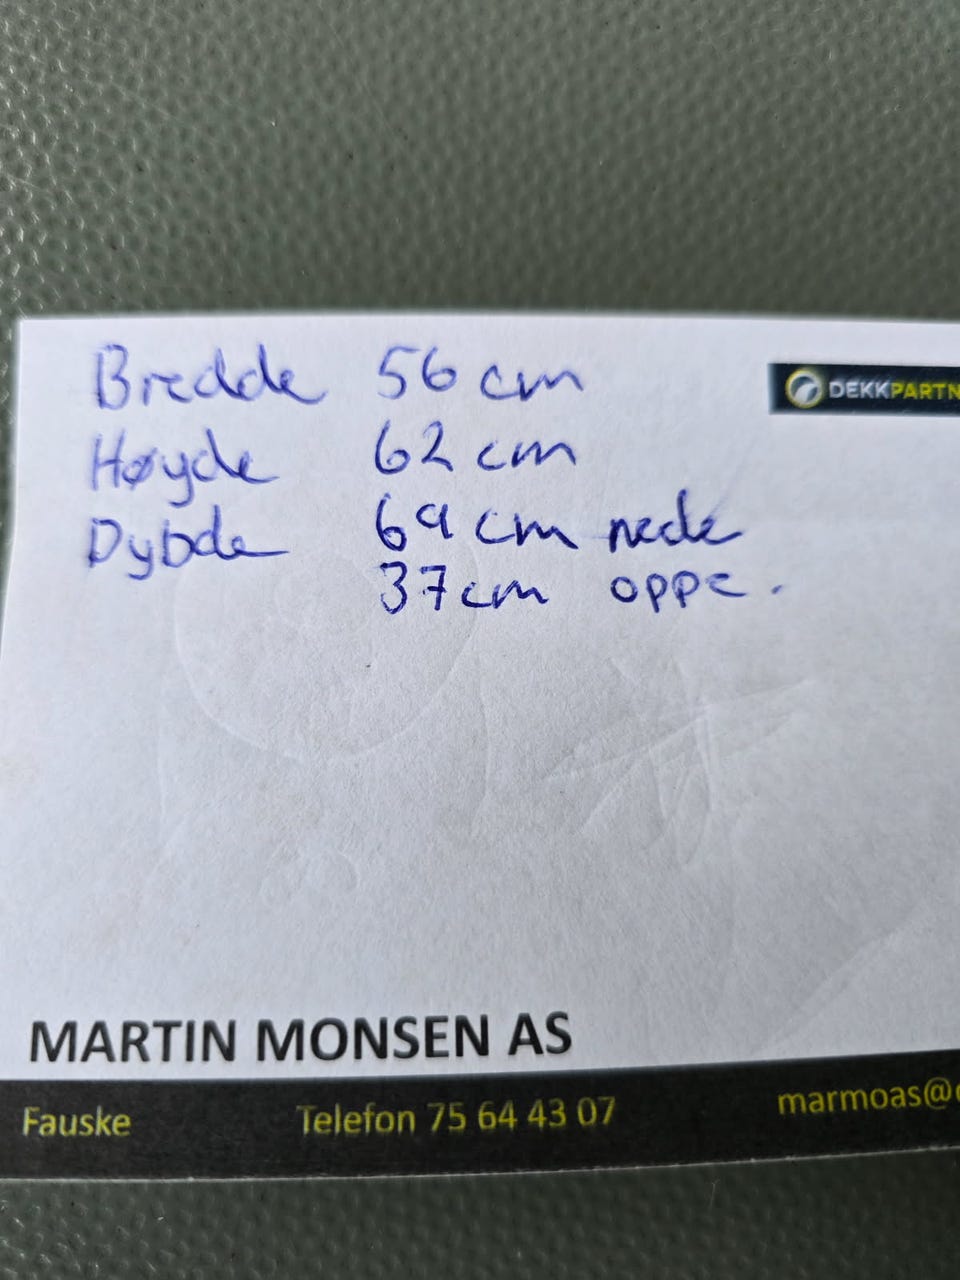 Bredde 56 cm
DEKKPARTN
Høyde 62 cm
Dybde 69 cm nede
37 cm oppe.
MARTIN MONSEN AS
Fauske Telefon 75 64 43 07 marmoas@